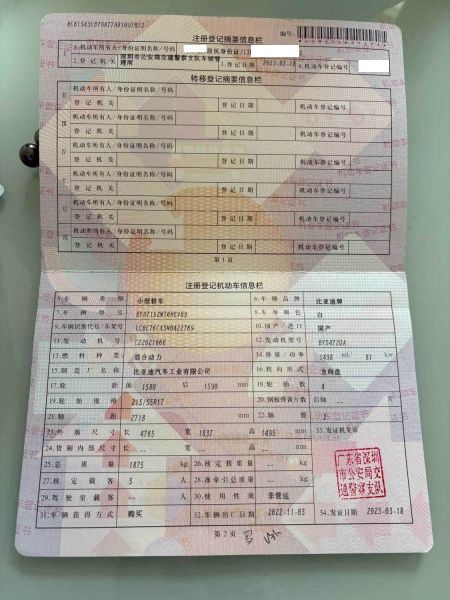 注册登记摘要信息栏
编号:
1.机动车所有人/身份证明名称/号码
居民身份证/
2.登记机关
深圳市公安局交通警察支队车辆管理所
3.登记日期
2023-03-18
4.机动车登记编号
转移登记摘要信息栏
机动车所有人/身份证明名称/号码
登记机关 登记日期 机动车登记编号
机动车所有人/身份证明名称/号码
登记机关 登记日期 机动车登记编号
机动车所有人/身份证明名称/号码
登记机关 登记日期 机动车登记编号
机动车所有人/身份证明名称/号码
登记机关 登记日期 机动车登记编号
机动车所有人/身份证明名称/号码
登记机关 登记日期 机动车登记编号
机动车所有人/身份证明名称/号码
登记机关 登记日期 机动车登记编号
第1页
注册登记机动车信息栏
5.车辆类型 小型轿车 6.车辆品牌 比亚迪牌
7.车辆型号 8.车身颜色 白
9.车辆识别代号/车架号 10.国产/进口 国产
11.发动机号 12.发动机型号 BYD472QA
13.燃料种类 混合动力 14.排量/功率 1498 ml/ 81 kw
15.制造厂名称 比亚迪汽车工业有限公司 16.转向形式 方向盘
17.轮距 前 1580 后 1590 mm 18.轮胎数 4
19.轮胎规格 215/55R17 20.钢板弹簧片数 后轴 --
21.轴距 2718 mm 22.轴数 2
23.外廓尺寸 长 4765 宽 1837 高 1495 mm 33.发证机关章
24.货厢内部尺寸 长 -- 宽 -- 高 -- mm
25.总质量 1875 kg 26.核定载质量 -- kg
27.核定载客 5 人 28.准牵引总质量 -- kg
29.驾驶室载客 -- 人 30.使用性质 非营运
31.车辆获得方式 购买 32.车辆出厂日期 2022-11-03 34.发证日期 2023-03-18
广东省深圳
市公安局交
通警察支队
第2页